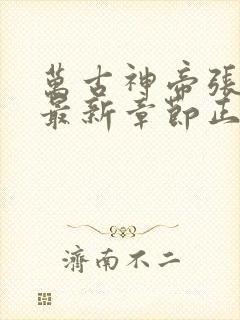 萬古神帝張
最新章節正
濟南不二